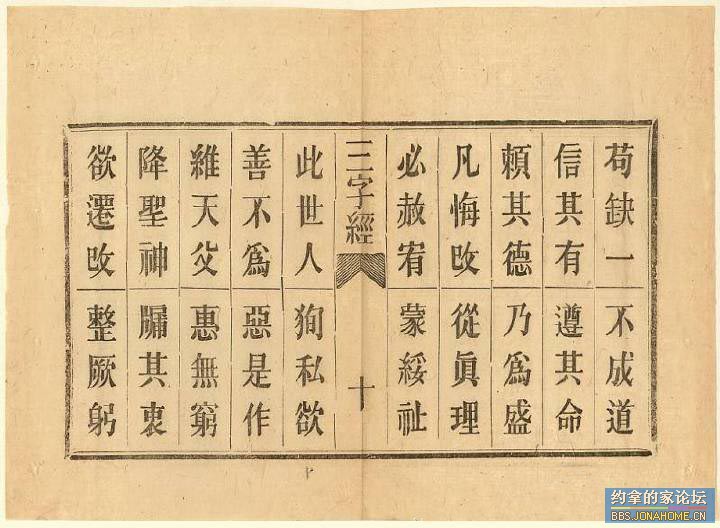 苟缺一 不成道
信其有 遵其命
賴其德 乃爲盛
凡悔改 從眞理
必赦宥 蒙綏祉
三字經 十
此世人 狥私欲
善不爲 惡是作
維天父 惠無窮
降聖神 牖其衷
欲遷改 整厥躬
十
约拿的家论坛
BBS.JONAHOME.CN